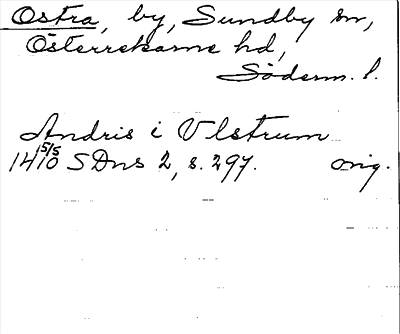 Ostra, by, Sundby sn,
Österrekarne hd,
Söderm. l.
Andris i Vlstrum
1410 5/5 SDns 2, s. 297. orig.